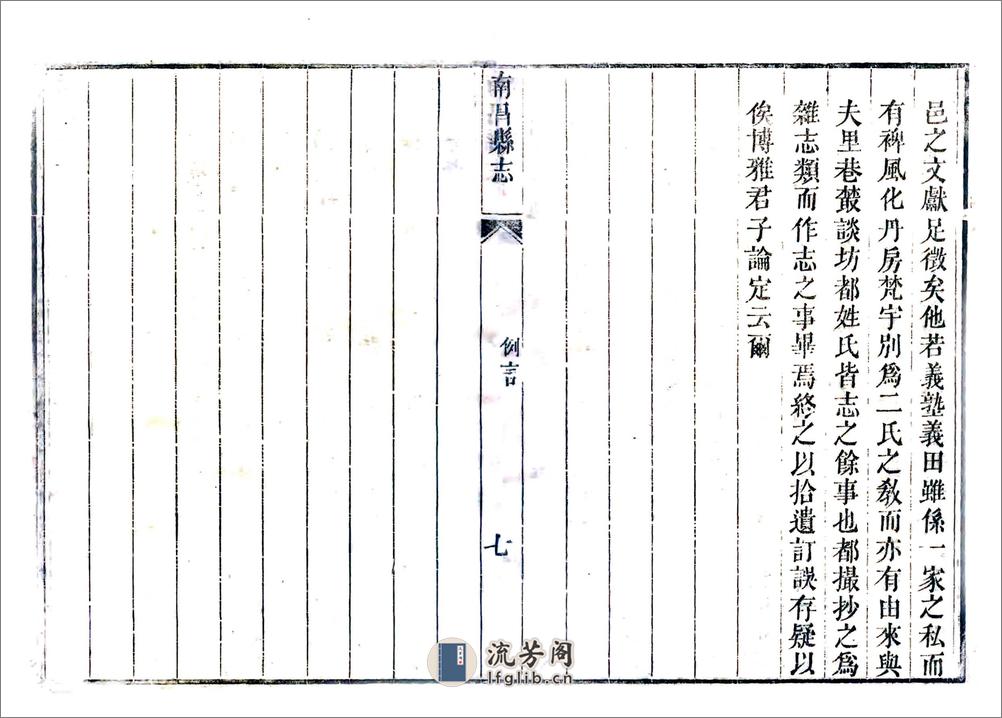 邑之文獻足徵矣他若義塾義田雖係一家之私而
有裨風化丹房梵宇別爲二氏之教而亦有由來與
夫里巷叢談坊都姓氏皆志之餘事也都撮抄之爲
雜志類而作志之事畢焉終之以拾遺訂誤存疑以
俟博雅君子論定云爾
南昌縣志
例言
七
流芳阁
lfglib.cn